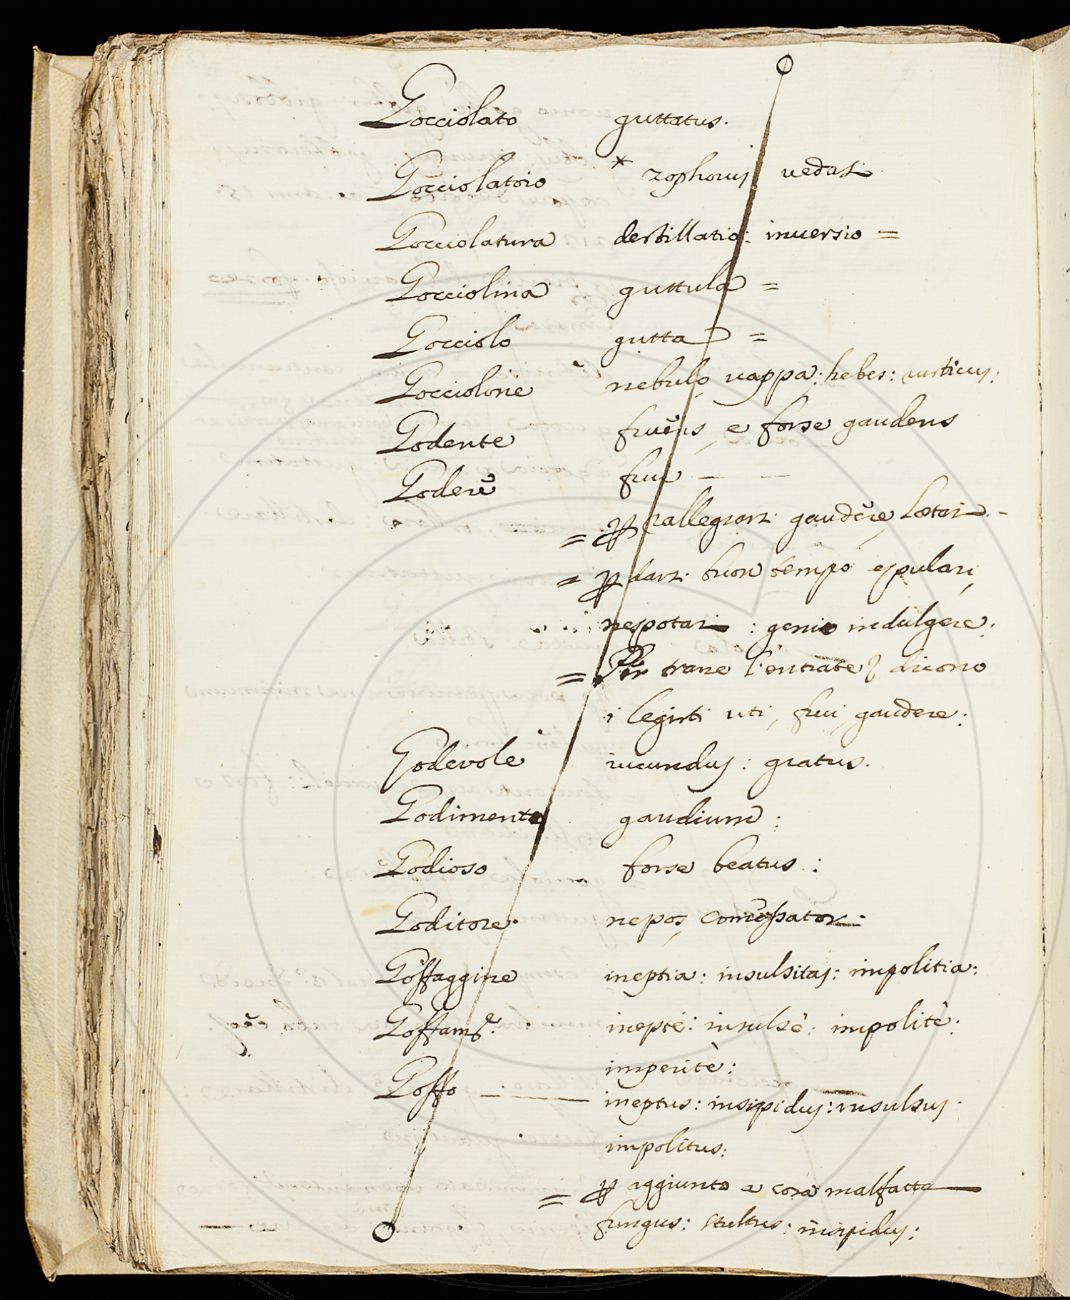 Gocciolato guttatus.
Gocciolatoio * zophorus vedasi
Gocciolatura destillatio: inversio =
Gocciolina guttula =
Gocciolo gutta =
Gocciolone nebulo, vappa: hebes: rusticus:
Godente fruens, e forse gaudens
Godere frui — —
= p rallegrarsi gaudere, lætari –
= p darsi buon tempo epulari,
nepotari : genio indulgere:
= Per trarre l'entrate dicono
i legisti uti, frui, gaudere:
Godevole iucundus: gratus.
Godimento gaudium:
Godioso forse beatus:
Goditore. nepos, comessator:
Goffaggine ineptia: insulsitas: impolitia:
Goffamte: ineptè: insulsè: impolitè:
imperitè:
Goffo — ineptus: insipidus: insulsus.
impolitus:
= p aggiunto a cosa malfatta
fungus: stultus: insipidus: